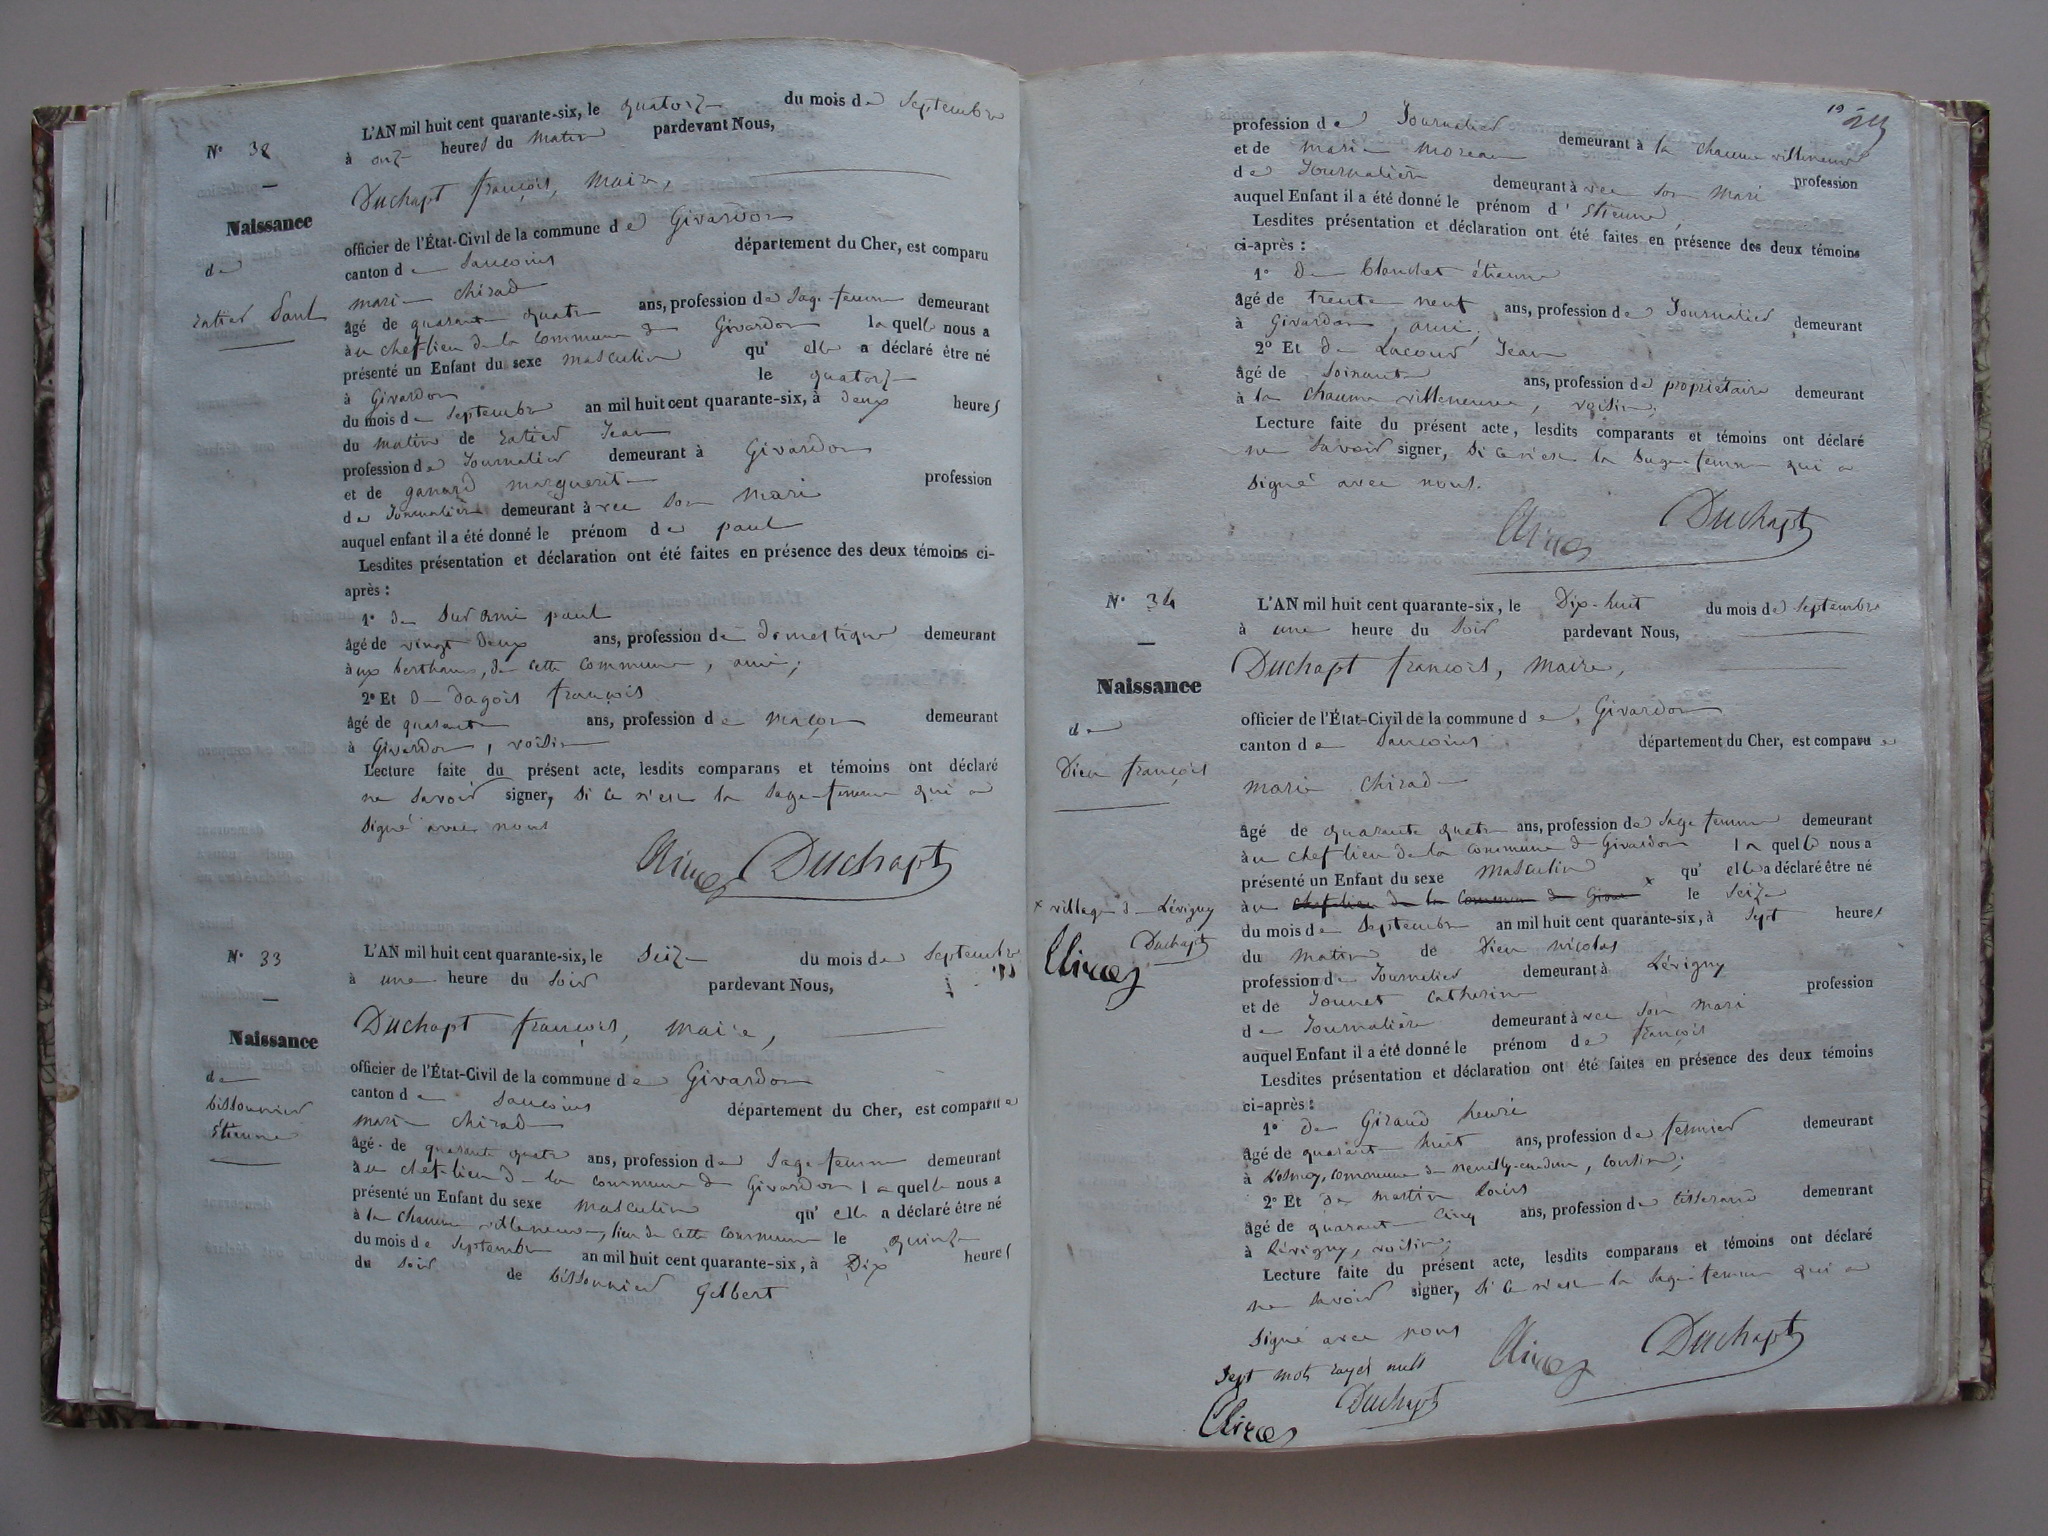 N° 32
L'AN mil huit cent quarante-six, le quatorze du mois de Septembre
à onze heures du matin pardevant Nous,
Duchapt françois, maire,
Naissance
officier de l'État-Civil de la commune de Givardon
de
canton de Sancoins département du Cher, est comparu
Entier Paul
marie Chirade
âgé de quarante quatre ans, profession de Sage-femme demeurant
à u chef-lieu de la commune de Givardon la quelle nous a
présenté un Enfant du sexe masculin qu' elle a déclaré être né
à Givardon le quatorze
du mois de Septembre an mil huit cent quarante-six, à deux heures
du matin de Jean
profession de Journalier demeurant à Givardon
et de marguerite profession
de Journalière demeurant à vec son mari
auquel enfant il a été donné le prénom de paul
Lesdites présentation et déclaration ont été faites en présence des deux témoins ci-
après :
1° de paul
âgé de vingt deux ans, profession de domestique demeurant
à ux berthaux, de cette commune, ami;
2° Et de dagois françois
âgé de quarante ans, profession de maçon demeurant
à Givardon, voisin
Lecture faite du présent acte, lesdits comparans et témoins ont déclaré
ne savoir signer, si ce n'est la Sage-femme qui a
signé avec nous
Duchapt
N° 33
L'AN mil huit cent quarante-six, le Seize du mois de Septembre
à une heure du Soir pardevant Nous,
Duchapt françois, maire,
Naissance
officier de l'État-Civil de la commune de Givardon
de
canton de Sancoins département du Cher, est comparu e
bissonnier
Étienne
marie Chirade
âgé de quarante quatre ans, profession de Sage-femme demeurant
à u chef-lieu de la commune de Givardon la quelle nous a
présenté un Enfant du sexe masculin qu' elle a déclaré être né
à la chaume villeneuve, lieu de cette commune le quinze
du mois de Septembre an mil huit cent quarante-six, à Dix heures
du soir de bissonnier Gilbert
19
profession de Journalier demeurant à la chaume villeneuve
et de marie moreau profession
de Journalière demeurant à vec son mari
auquel Enfant il a été donné le prénom d' Etienne
Lesdites présentation et déclaration ont été faites en présence des deux témoins
ci-après :
1° De blanchet étienne
âgé de trente neuf ans, profession de Journalier demeurant
à Givardon, ami;
2° Et de Lacour Jean
âgé de soixante ans, profession de propriétaire demeurant
à la chaume villeneuve, voisin;
Lecture faite du présent acte, lesdits comparants et témoins ont déclaré
ne savoir signer, si ce n'est la Sage-femme qui a
signé avec nous.
Duchapt
N° 34
L'AN mil huit cent quarante-six, le Dix-huit du mois de Septembre
à une heure du Soir pardevant Nous,
Duchapt françois, maire,
Naissance
officier de l'État-Civil de la commune de Givardon
de
canton de Sancoins département du Cher, est comparu e
Dieu françois
marie Chirade
âgé de quarante quatre ans, profession de Sage femme demeurant
à u chef lieu de la commune de Givardon la quelle nous a
présenté un Enfant du sexe masculin x qu' elle a déclaré être né
x village de Lévigny
Duchapt
à u chef-lieu de la commune de Givar le seize
du mois de Septembre an mil huit cent quarante-six, à Sept heures
du matin de Dieu nicolas
profession de Journalier demeurant à Lévigny
et de Jounet Catherine profession
de Journalière demeurant à vec son mari
auquel Enfant il a été donné le prénom de françois
Lesdites présentation et déclaration ont été faites en présence des deux témoins
ci-après :
1° de Giraud henri
âgé de quarante huit ans, profession de fermier demeurant
à commune de neuilly-en-dun, cousin;
2° Et de martin Louis
âgé de quarante cinq ans, profession de tisserand demeurant
à Lévigny, voisin;
Lecture faite du présent acte, lesdits comparans et témoins ont déclaré
ne savoir signer, si ce n'est la Sage-femme qui a
signé avec nous
Duchapt
Sept mots rayés nuls
Duchapt